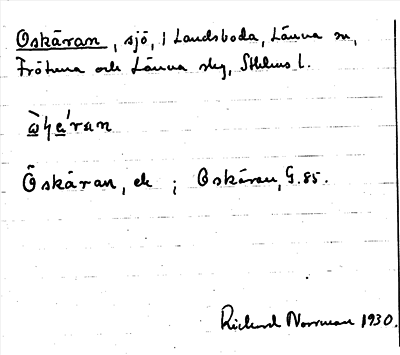 Oskäran, sjö, i Landsboda, Länna sn,
Frötuna och Länna slg, Sthlms l.
Öskäran, ek ; Oskäran, G. 85.
Rickard Norrman 1930.